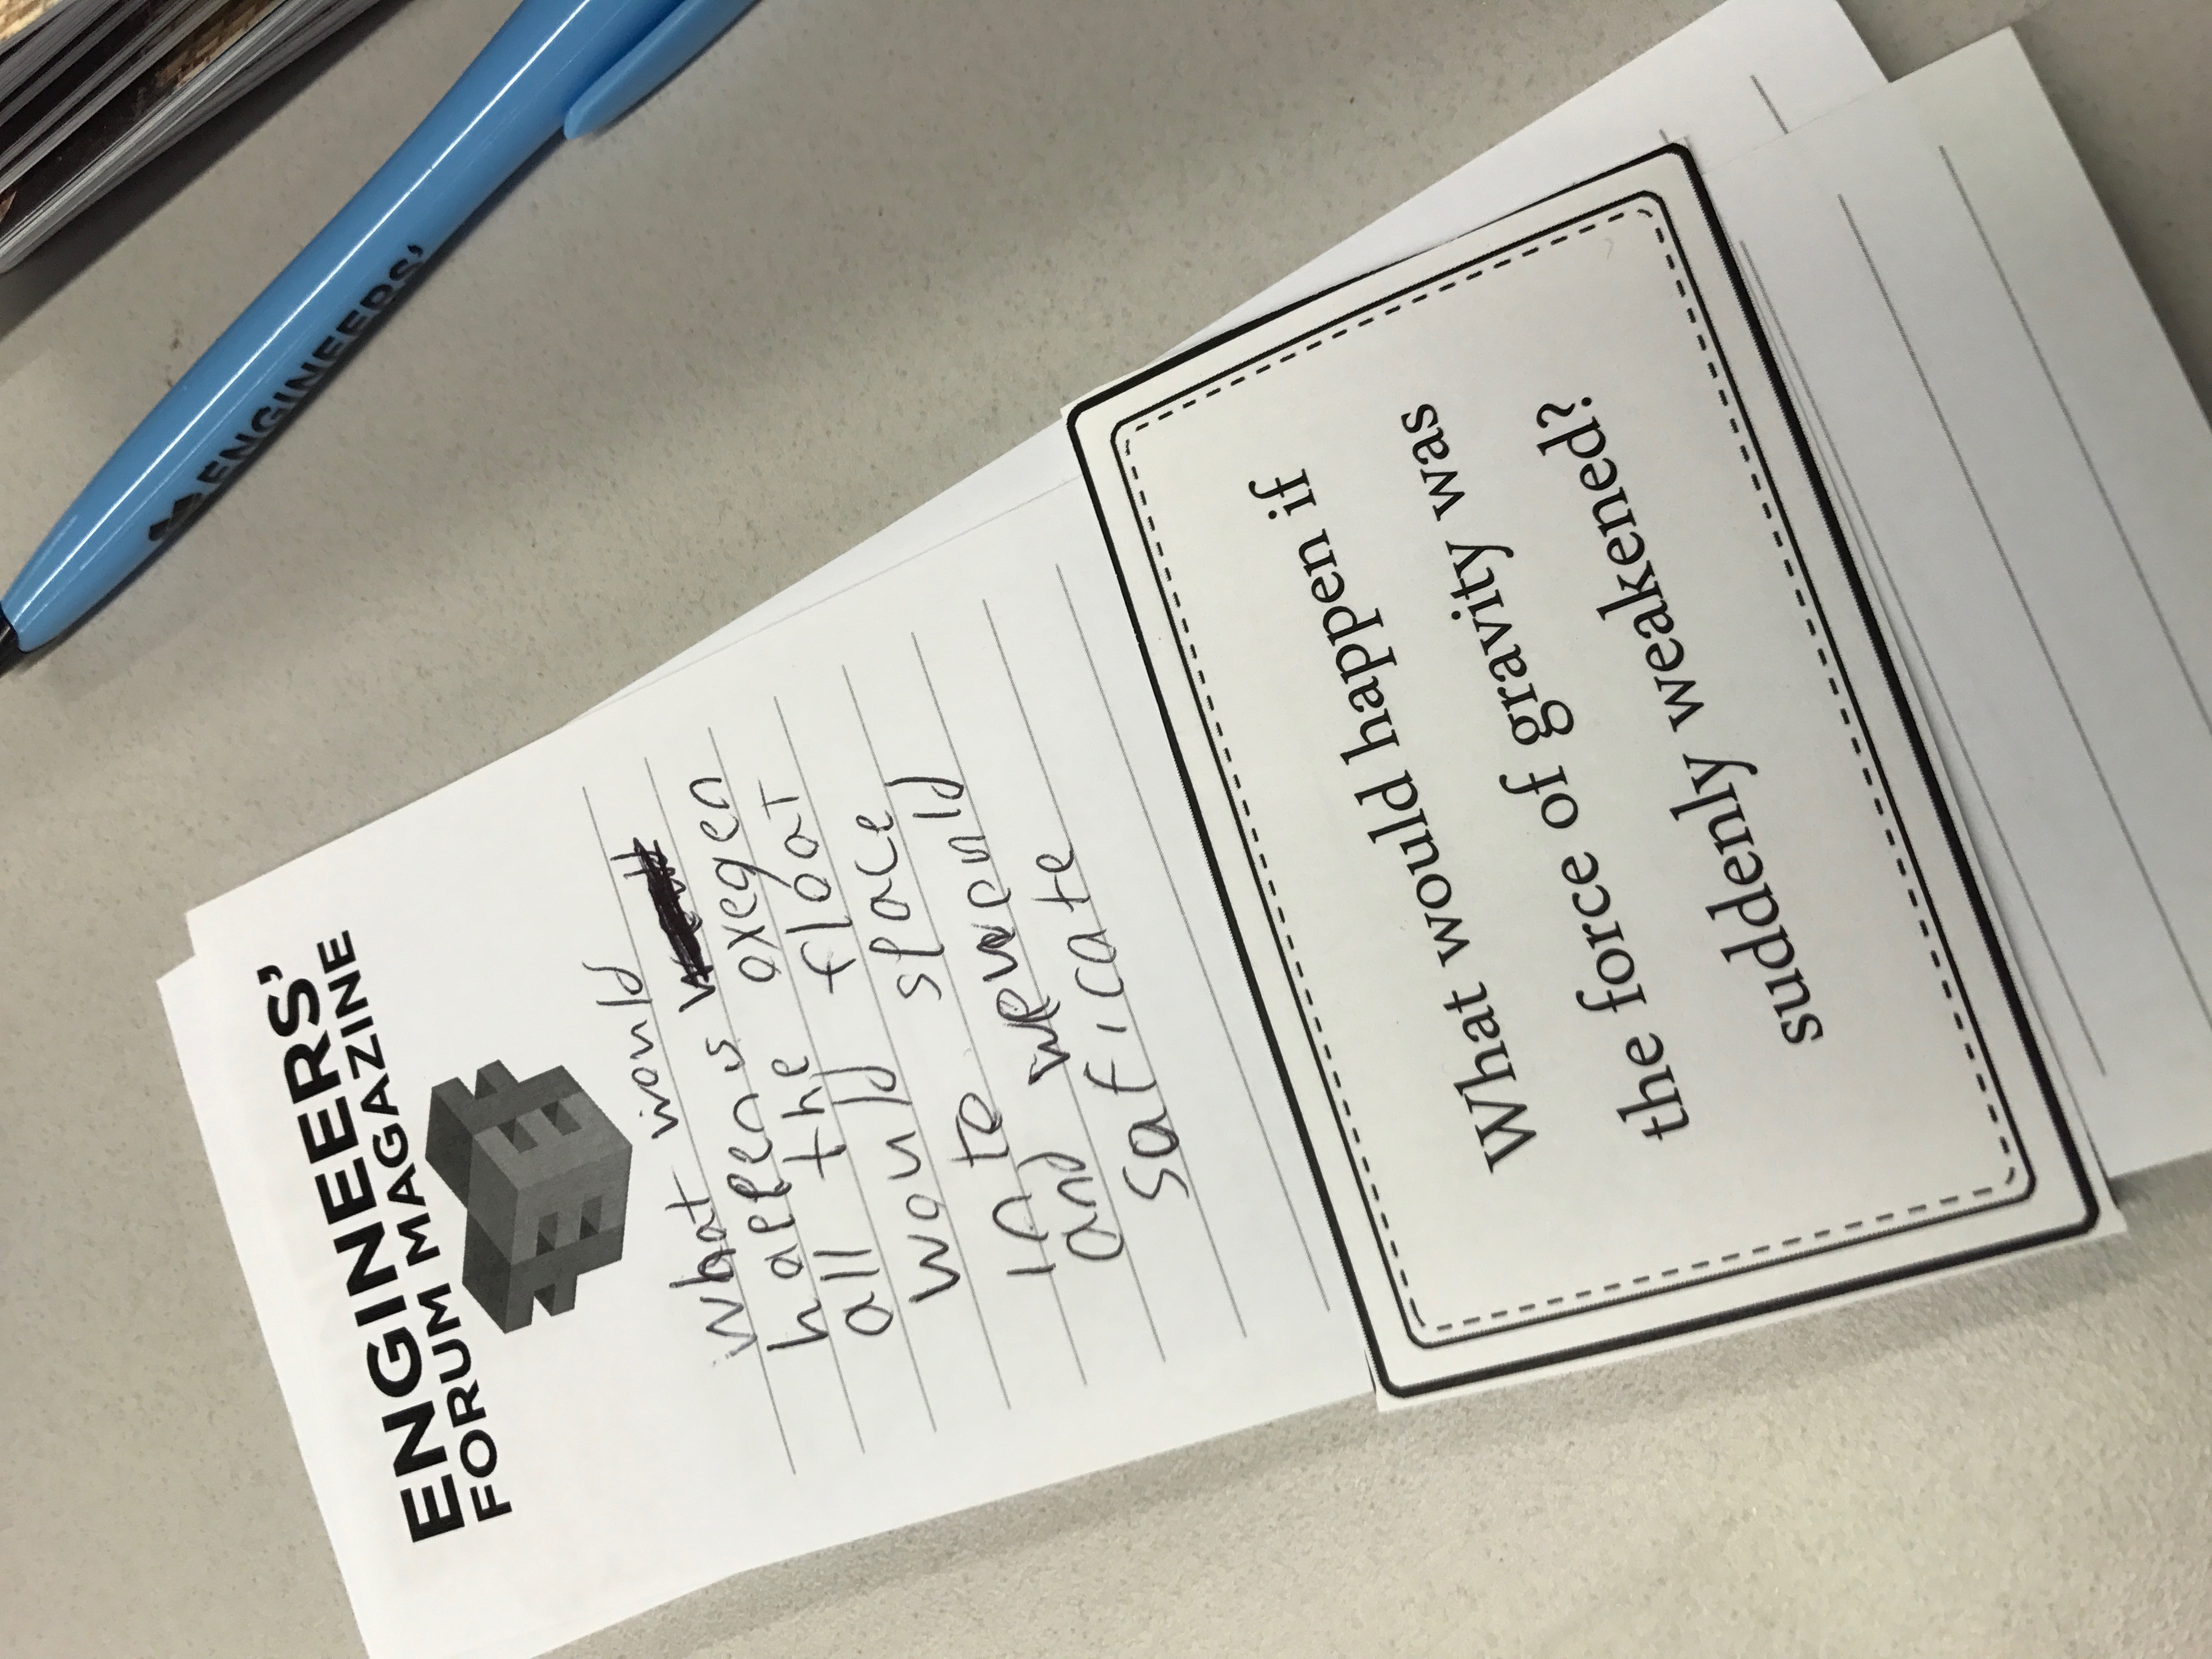 ENGINEERS'
ENGINEERS'
FORUM MAGAZINE
what would
happen is
all the oxegen
would float
in to space
and we would
saficate
What would happen if
the force of gravity was
suddenly weakened?